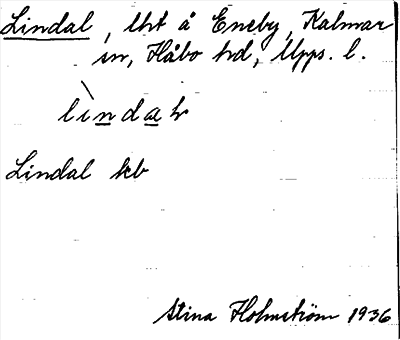 Lindal, lht å Eneby, Kalmar
sn, Håbo hd, Upps. l.
lìndaɫ
Lindal kb
Stina Holmström 1936